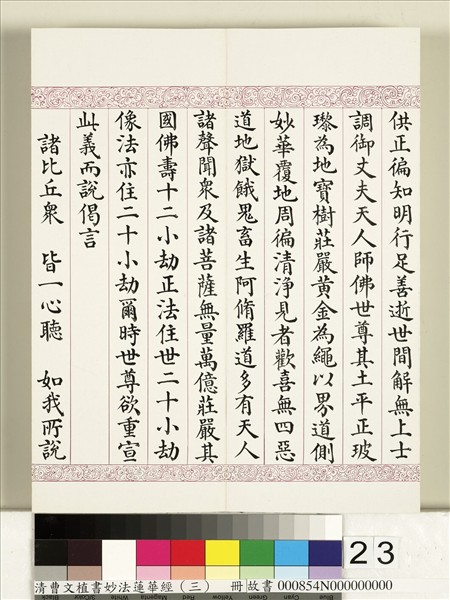 供正徧知明行足善逝世間解無上士
調御丈夫天人師佛世尊其土平正玻
瓈為地寶樹莊嚴黃金為繩以界道側
妙華覆地周徧清淨見者歡喜無四惡
道地獄餓鬼畜生阿脩羅道多有天人
諸聲聞衆及諸菩薩無量萬億莊嚴其
國佛壽十二小劫正法住世二十小劫
像法亦住二十小劫爾時世尊欲重宣
此義而說偈言
諸比丘衆 皆一心聽 如我所說
23
清曹文植書妙法蓮華經（三） 冊 故書 000854N000000000
Black 3/Color White Magenta Red Yellow Green Cyan Blue